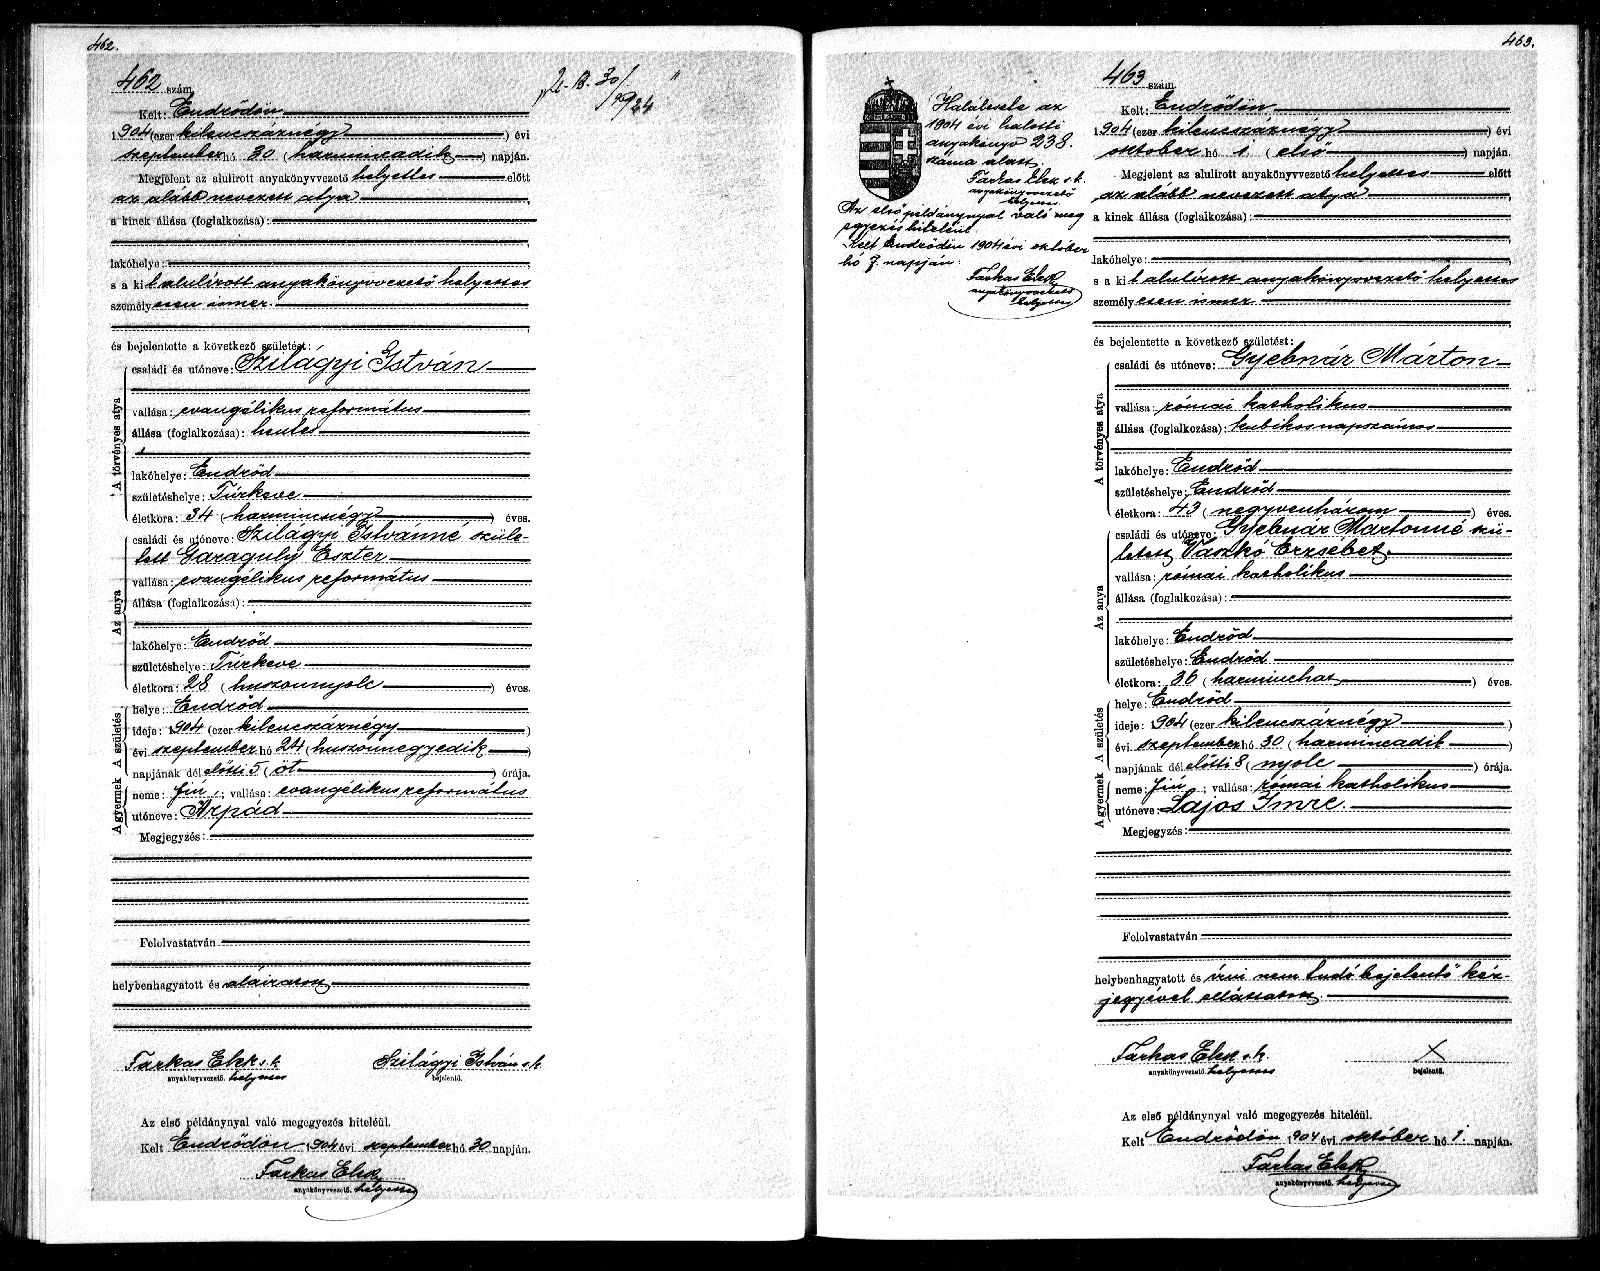 462.
462 szám.
Kelt: Endrődön
1904 (ezer kilencszáznégy) évi
szeptember hó 30 (harmincadik) napján.
Megjelent az alulirott anyakönyvvezető helyettes előtt
az alább nevezett atya
a kinek állása (foglalkozása):
lakóhelye:
s a kit alulírott anyakönyvvezető helyettes
személyesen ismer.
és bejelentette a következő születést:
A törvényes atya
családi és utóneve: Szilágyi István
vallása: evangélikus református
állása (foglalkozása): hentes
lakóhelye: Endrőd
születéshelye: Túrkeve
életkora: 34 (harmincnégy) éves.
Az anya
családi és utóneve: Szilágyi Istvánné szüle-
tett Garaguly Eszter
vallása: evangélikus református
állása (foglalkozása):
lakóhelye: Endrőd
születéshelye: Túrkeve
életkora: 28 (huszonnyolc) éves.
A gyermek A születés
helye: Endrőd
ideje: 1904 (ezer kilencszáznégy)
évi szeptember hó 24 (huszonnegyedik)
napjának dél előtti 5 (öt) órája.
neme: fiú; vallása: evangélikus református
utóneve: Árpád
Megjegyzés:
Felolvastatván
helybenhagyatott és aláiratott
Farkas Elek s. k. Szilágyi István s. k.
anyakönyvvezető. helyettes bejelentő.
Az első példánynyal való megegyezés hiteléül.
Kelt Endrődön 1904 évi szeptember hó 30 napján.
Farkas Elek
anyakönyvvezető. helyettes
463.
Halálesete az
1904 évi halotti
anyakönyv 238.
száma alatt
Farkas Elek s. k.
anyakönyvvezető
helyettes.
Az első példánynyal való meg
egyezés hiteléül
Kelt Endrődön 1904 évi október
hó 7. napján.
Farkas Elek
anyakönyvvezető
helyettes
463 szám.
Kelt: Endrődön
1904 (ezer kilencszáznégy) évi
október hó 1. (első) napján.
Megjelent az alulirott anyakönyvvezető helyettes előtt
az alább nevezett atya
a kinek állása (foglalkozása):
lakóhelye:
s a kit alulírott anyakönyvvezető helyettes
személyesen ismer
és bejelentette a következő születést:
A törvényes atya
családi és utóneve: Gyebnár Márton
vallása: római katholikus
állása (foglalkozása): kubikosnapszámos
lakóhelye: Endrőd
születéshelye: Endrőd
életkora: 43 (negyvenhárom) éves.
Az anya
családi és utóneve: Gyebnár Mártonné szü-
letett Vaszkó Erzsébet.
vallása: római katholikus
állása (foglalkozása):
lakóhelye: Endrőd
születéshelye: Endrőd
életkora: 36 (harminchat) éves.
A gyermek A születés
helye: Endrőd
ideje: 1904 (ezer kilencszáznégy)
évi szeptember hó 30 (harmincadik)
napjának dél előtti 8 (nyolc) órája.
neme: fiú; vallása: római katholikus
utóneve: Lajos Imre.
Megjegyzés:
Felolvastatván
helybenhagyatott és írni nem tudó bejelentő kéz-
jegyével elláttatott.
Farkas Elek s. k. X
anyakönyvvezető. helyettes bejelentő.
Az első példánynyal való megegyezés hiteléül.
Kelt Endrődön 1904 évi október hó 1. napján.
Farkas Elek
anyakönyvvezető. helyettes